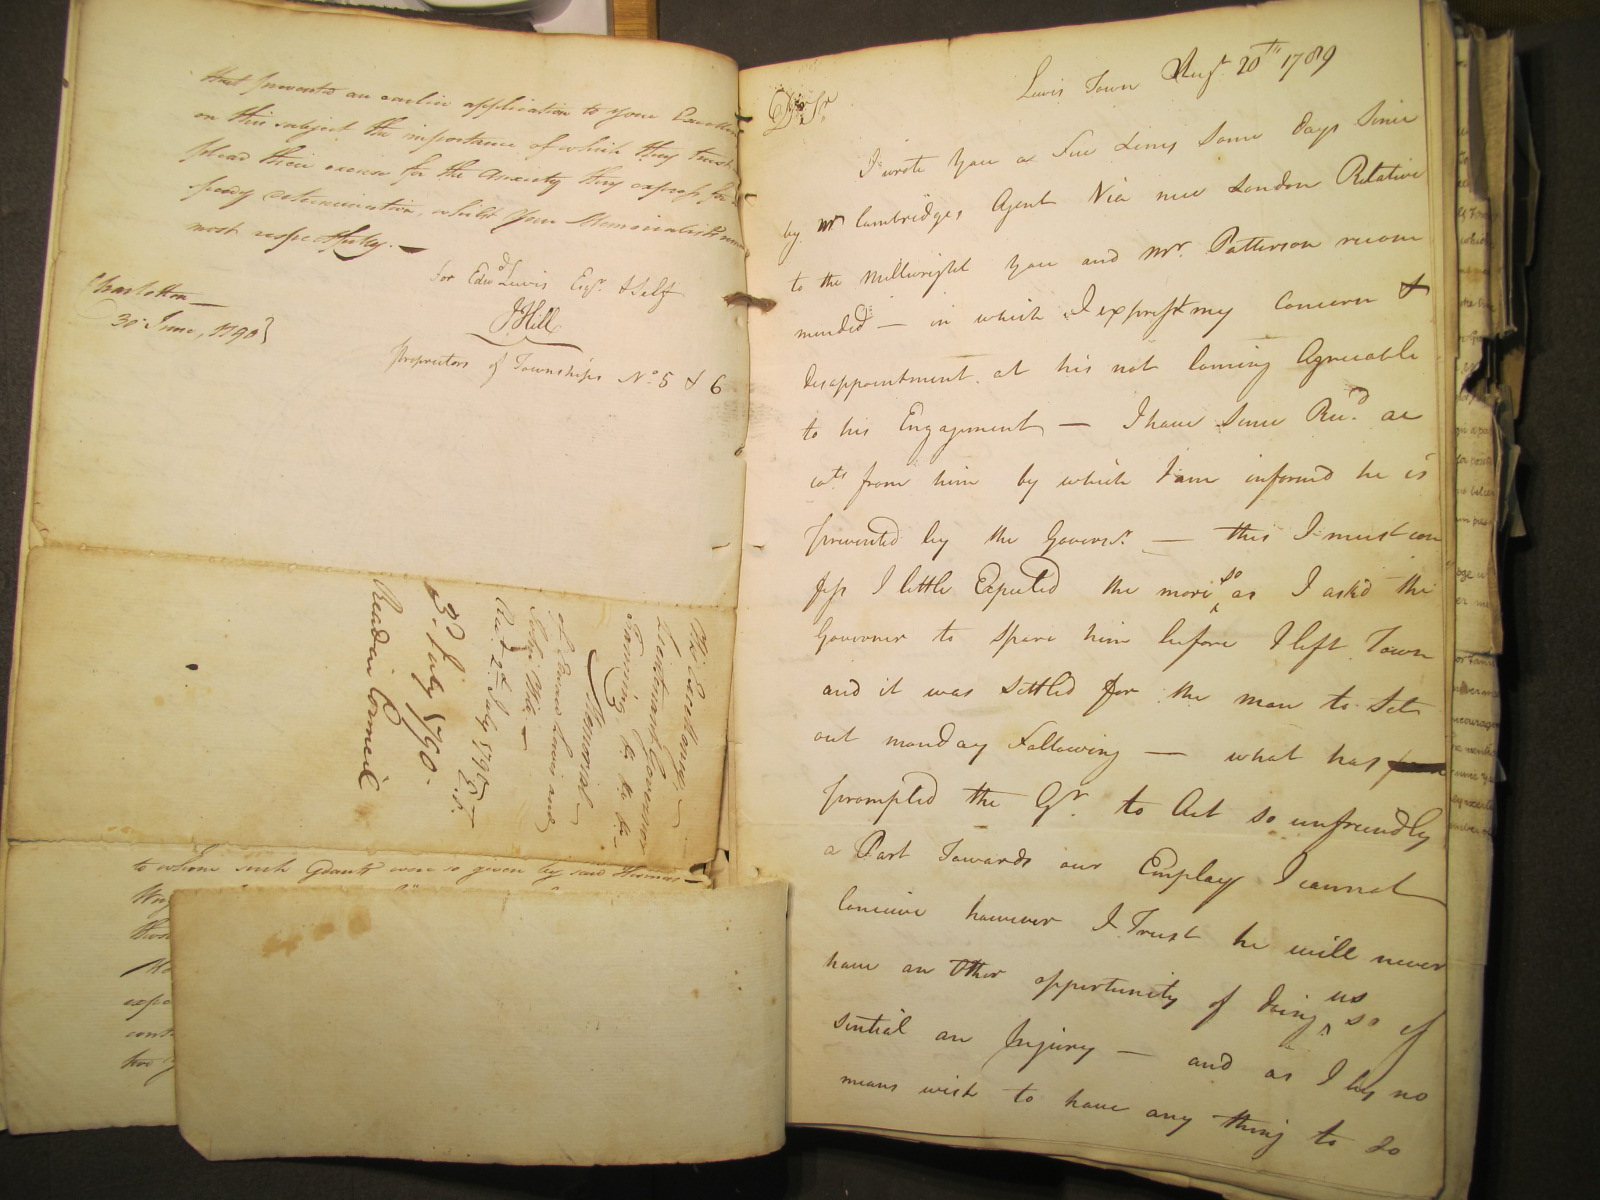 that prevented an earlier application to your Excellen
on this subject the importance of which they trust
plead their excuse for the Anxiety they express for a
speedy determination, whilst your Memorialists
most respectfully. —
For Edwd Lewis Esqr. & Self
JHill
Proprietors of Townships No. 5 & 6
Charlotton
30 June, 1790}
His Excellency
Lieutenant Governor
Fanning &c &c &c
Memorial
of Edward Lewis and
John Hill —
Recd. 2d. July 1790
3d. July 1790.
Read in Council
to whom such Grants were so given by said Thomas —
Dr. Sr.
Lewis Town Augt. 20th 1789
I wrote you a Few Lines Some days Since
by Mr Cambridges Agent Via new London Relative
to the Millwright you and Mr. Patterson recom
mended — in which I exprest my Concern &
disappointment at his not Coming Agreeable
to his Engagement — I have Since Recd. ac
cots from him by which I am informd he is
prevented by the Governr. — this I must con
fess I little Expected the more so as I askd the
Governor to Spare him before I left Town
and it was Settled for the man to Set
out monday Following — what has
prompted the Gr. to Act so unfreindly
a Part Towards our Employ I cannot
Conceive however I Trust he will never
have an Other oppertunity of doing us so es
sential an Injury — and as I by no
means wish to have any thing to do